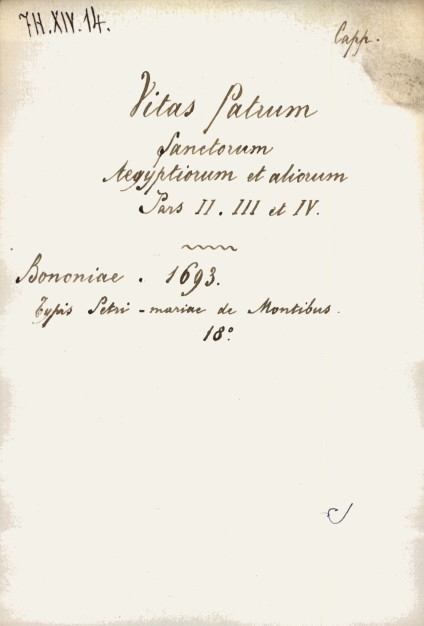 7H.XIV.14.
Capp.
Vitas Patrum
Sanctorum
Aegyptiorum et aliorum
Pars II. III et IV.
Bononiae. 1693.
Typis Petri-mariae de Montibus.
18°